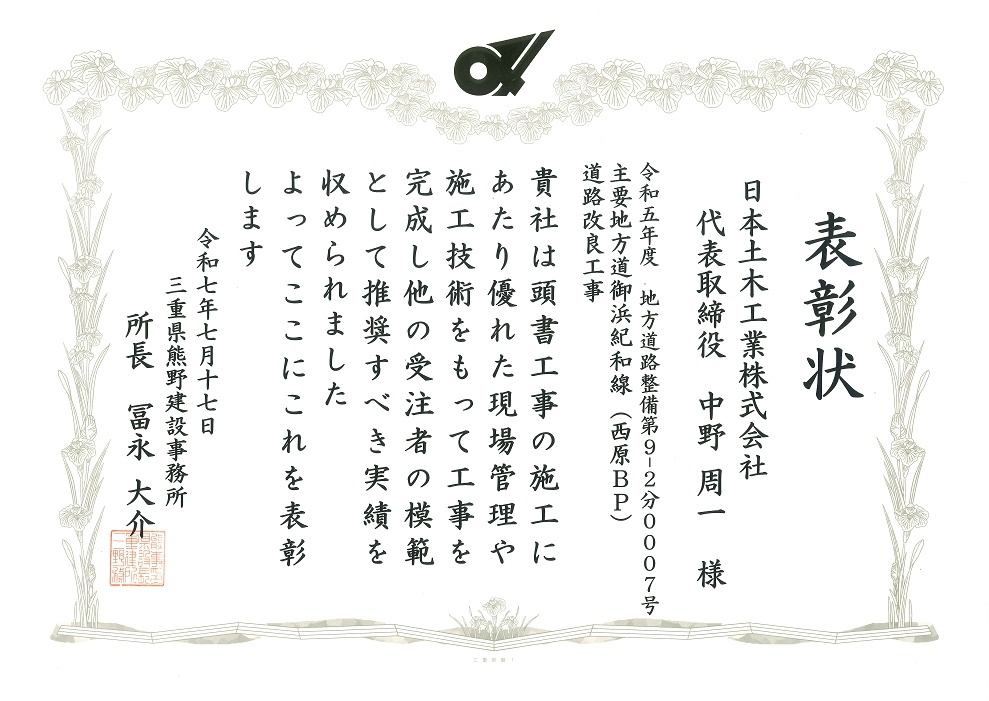 表彰状
日本土木工業株式会社
代表取締役　中野 周一　様
令和五年度　地方道路整備第９−２分０００７号
主要地方道御浜紀和線（西原ＢＰ）
道路改良工事
貴社は頭書工事の施工に
あたり優れた現場管理や
施工技術をもって工事を
完成し他の受注者の模範
として推奨すべき実績を
収められました
よってここにこれを表彰
します
令和七年七月十七日
三重県熊野建設事務所
所長　冨永 大介